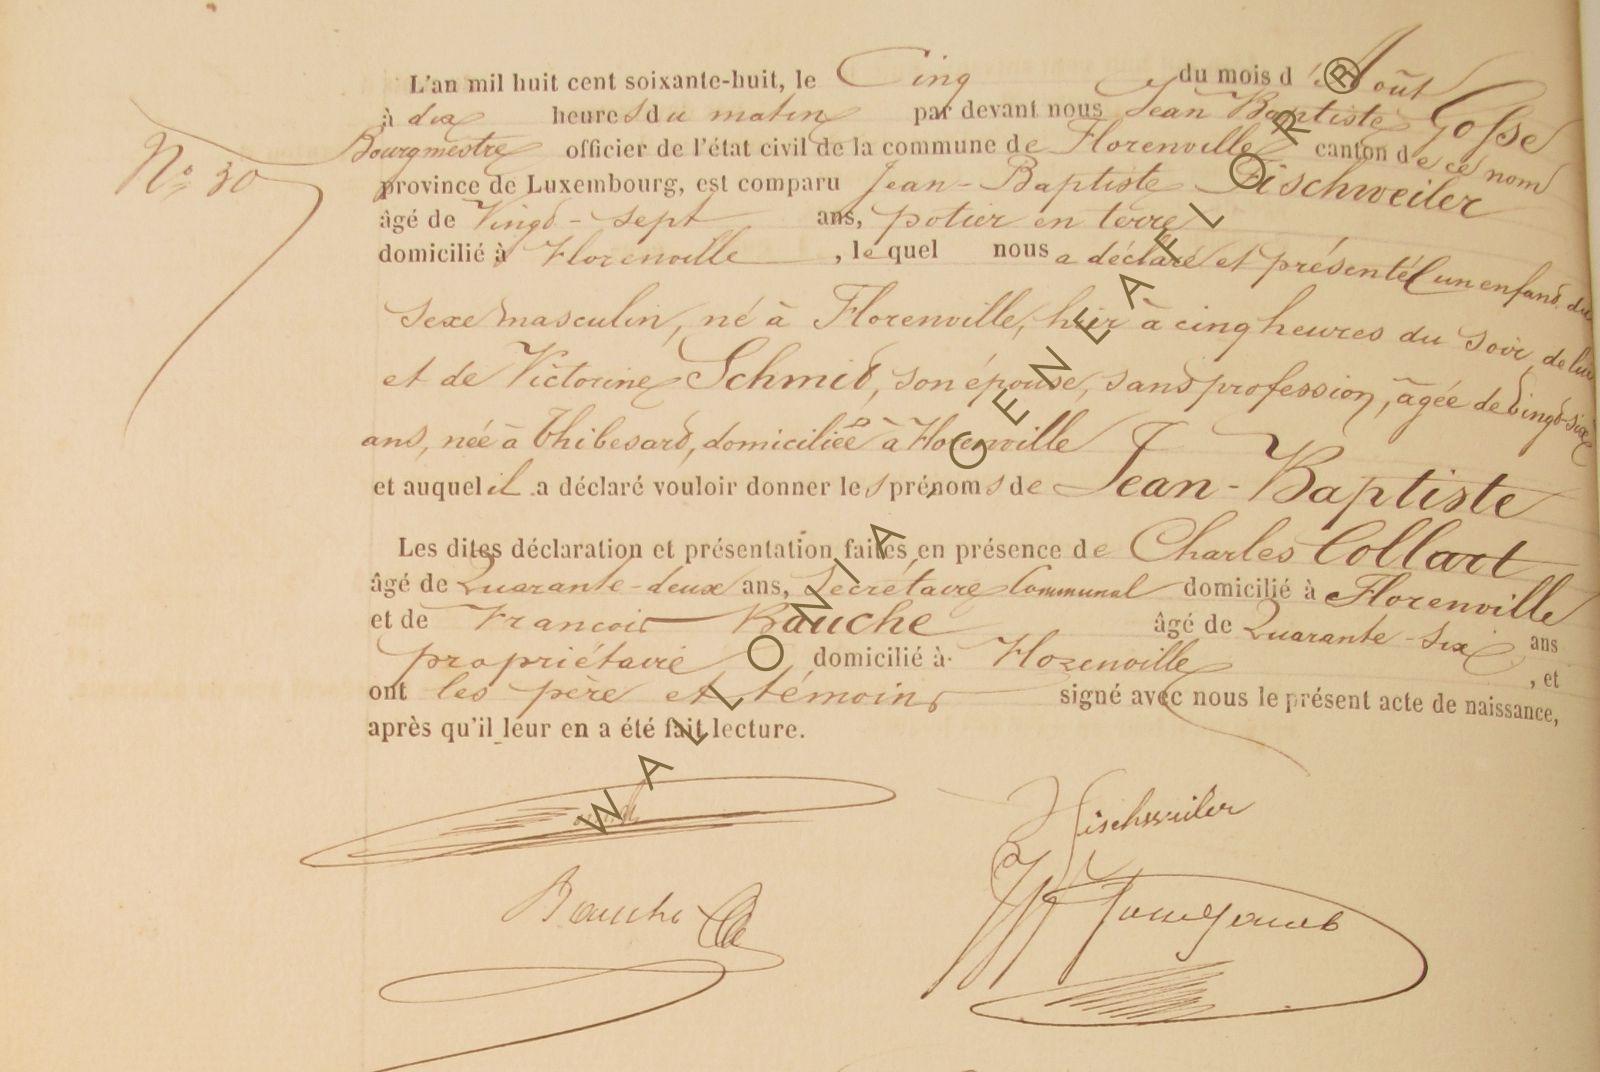 L'an mil huit cent soixante-huit, le Cinq du mois d'Août
à dix heures du matin par devant nous Jean Baptiste Gosse
Bourgmestre officier de l'état civil de la commune de Florenville canton de ce nom
N° 30
province de Luxembourg, est comparu Jean-Baptiste Fischweiler
âgé de Vingt-sept ans, potier en terre
domicilié à Florenville, lequel nous a déclaré et présenté un enfant du
sexe masculin, né à Florenville, hier à cinq heures du soir, de lui
et de Victorine Schmit, son épouse, sans profession, âgée de vingt-six
ans, née à Thibesart, domiciliée à Florenville
et auquel il a déclaré vouloir donner les prénoms de Jean-Baptiste
Les dites déclaration et présentation faites en présence de Charles Collart
âgé de Quarante-deux ans, Secrétaire Communal domicilié à Florenville
et de François Bauche âgé de Quarante-six ans
propriétaire domicilié à Florenville, et
ont les père et témoins signé avec nous le présent acte de naissance,
après qu'il leur en a été fait lecture.
Fischweiler
Bauche
WALLONIA, GENEAFLOR ®